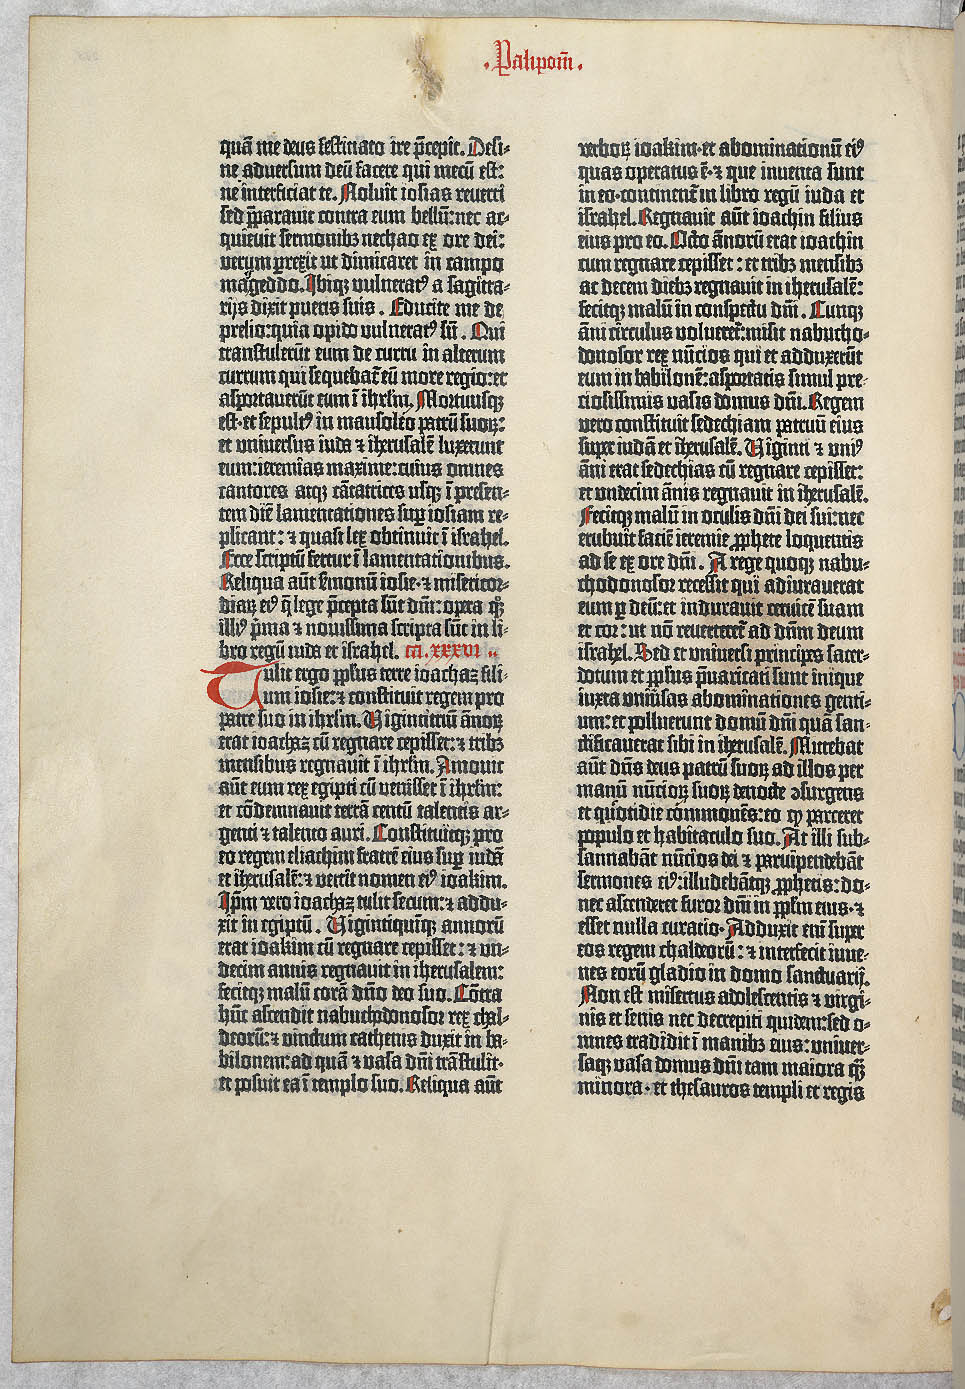 .Palipom̄.
quā me deus festinato ire p̄cepit. Desi-
ne adversum deū facere qui mecū est:
ne interficiat te. Noluit iosias reverti
sed p̄paravit contra eum bellū: nec ac-
quievit sermonibꝫ nechao ex ore dei:
verum perrexit ut dimicaret in campo
mageddo. Ibiqꝫ vulneratꝰ a sagitta-
rijs dixit pueris suis. Educite me de
prelio: quia opido vulneratꝰ sū. Qui
transtulerūt eum de curru in alterum
currum qui sequebat̄ eū more regio: et
asportaverūt eum ī ihrl̄m. Mortuusqꝫ
est. et sepultꝰ in mausoleo patrū suoꝝ:
et universus iuda et iherusalē luxerunt
eum: ieremias maxime: cuius omnes
cantores atqꝫ cātatrices usqꝫ ī presen-
tem diē lamentationes suꝑ iosiam re-
plicant: et quasi lex obtinuit ī israhel.
Ecce scriptū fertur ī lamentationibus.
Reliqua aūt s̄monū iosie. et misericor-
diaꝝ eiꝰ q̄ lege p̄cepta sūt dn̄i: opera qꝫ
illiꝰ p̄ma et novissima scripta sūt in li-
bro regū iuda et israhel. ca. xxxvi
Tulit ergo pp̄lus terre ioachaz fili-
um iosie: et constituit regem pro
patre suo in ihrl̄m. Viginti triū ānoꝝ
erat ioachaz cū regnare cepisset: et tribꝫ
mensibus regnavit ī ihrl̄m. Amovit
aūt eum rex egipti cū venisset ī ihrl̄m:
et cōdemnavit terrā centū talentis ar-
genti et talento auri. Constituitqꝫ pro
eo regem eliachim fratrē eius suꝑ iudā
et iherusalē: et vertit nomen eiꝰ ioakim.
Ip̄m vero ioachaz tulit secum: et addu-
xit in egiptū. Vigintiquīqꝫ annorū
erat ioakim cū regnare cepisset: et un-
decim annis regnavit in iherusalem:
fecitqꝫ malū corā dn̄o deo suo. Cōtra
hūc ascendit nabuchodonosor rex chal-
deorū: et vinctum cathenis duxit in ba-
bilonem: ad quā et vasa dn̄i trāstulit.
et posuit ea ī templo suo. Reliqua aūt
verboꝝ ioakim. et abominationū eiꝰ
quas operatus ē. et que inventa sunt
in eo. continent̄ in libro regū iuda et
israhel. Regnavit aūt ioachin filius
eius pro eo. Octo ānorū erat ioachin
cum regnare cepisset: et tribꝫ mensibꝫ
ac decem diebꝫ regnavit in iherusalē:
fecitqꝫ malū in conspectu dn̄i. Cunqꝫ
āni circulus volveret̄: misit nabucho-
donosor rex nūcios qui et adduxerūt
eum in babilonē: asportatis simul pre-
ciosissimis vasis domus dn̄i. Regem
vero constituit sedechiam patruū eius
super iudā et iherusalē. Viginti et uniꝰ
āni erat sedechias cū regnare cepisset:
et undecim ānis regnavit in iherusalē.
Fecitqꝫ malū in oculis dn̄i dei sui: nec
erubuit faciē ieremie ꝓphete loquentis
ad se ex ore dn̄i. A rege quoqꝫ nabu-
chodonosor recessit qui adiuraverat
eum ꝑ deū: et induravit cervicē suam
et cor: ut nō reverteret̄ ad dn̄m deum
israhel. Sed et universi principes sacer-
dotum et pp̄lus p̄varicati sunt inique
iuxta univ̄sas abominationes genti-
um: et polluerunt domū dn̄i quā san-
ctificaverat sibi in iherusalē. Mittebat
aūt dn̄s deus patrū suoꝝ ad illos per
manū nūcioꝝ suoꝝ de nocte ↄsurgens
et quotidie commonēs: eo ꝙ parceret
populo et habitaculo suo. At illi sub-
sannabāt nūcios dei et parvipendebāt
sermones eiꝰ: illudebātqꝫ ꝓphetis: do-
nec ascenderet furor dn̄i in pp̄lm eius. et
esset nulla curatio. Adduxit enī super
eos regem chaldeorū: et interfecit iuve-
nes eorū gladio in domo sanctuarij.
Non est misertus adolescentis et virgi-
nis et senis nec decrepiti quidem: sed o-
mnes tradidit ī manibꝫ eius: univer-
saqꝫ vasa domus dn̄i tam maiora qꝫ̄
minora. et thesauros templi et regis